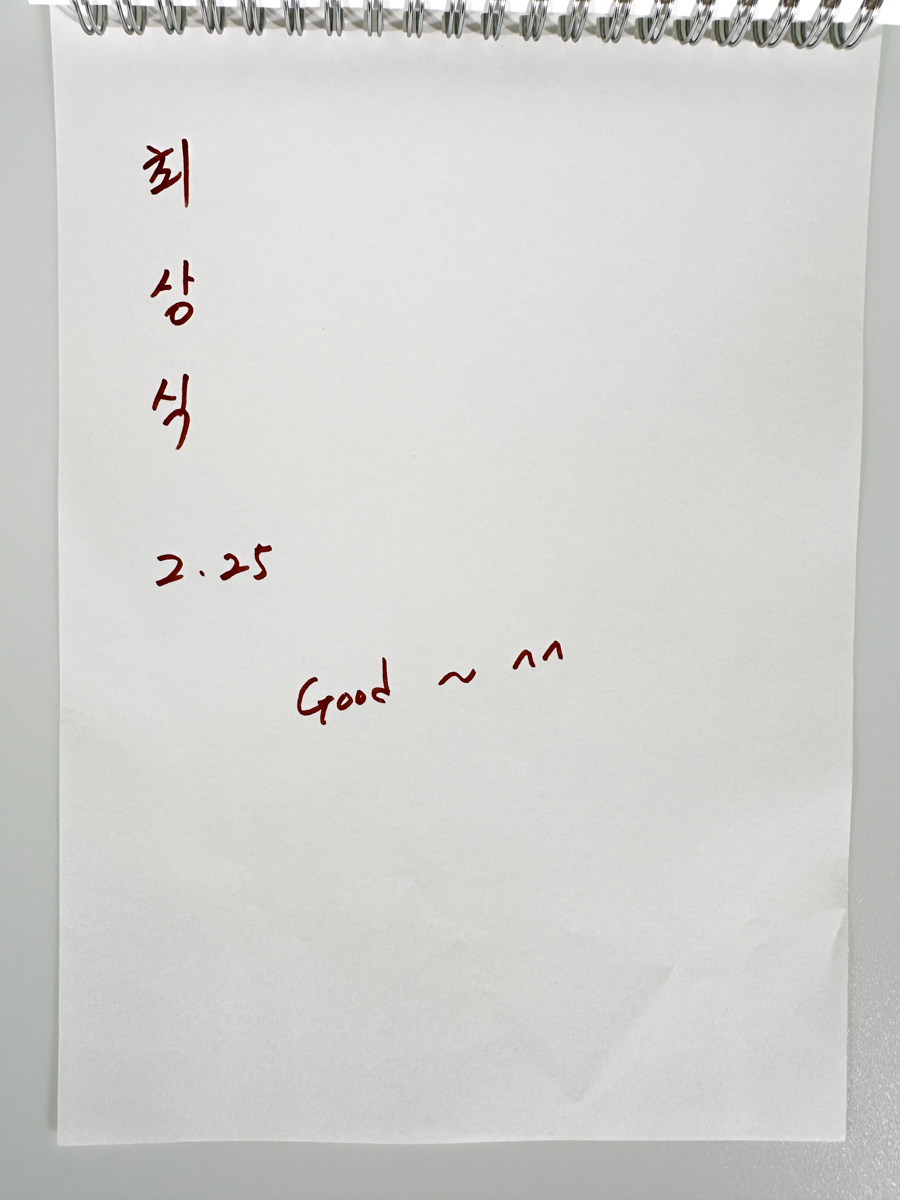 최
상
식
2.25
Good ~ ^^